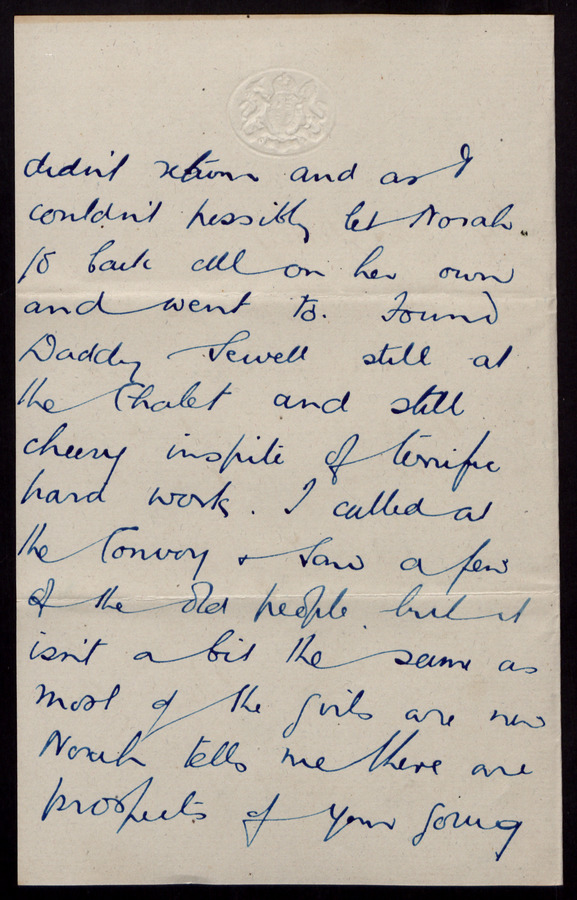 didn't return and as I
couldn't possibly let Norah
go back all on her own
and went to. Found
Daddy Sewell still at
the Chalet and still
cheery inspite of terrific
hard work. I called at
the Convoy & saw a few
of the old people but it
isn't a bit the same as
most of the girls are new
Norah tells me there are
prospects of your going